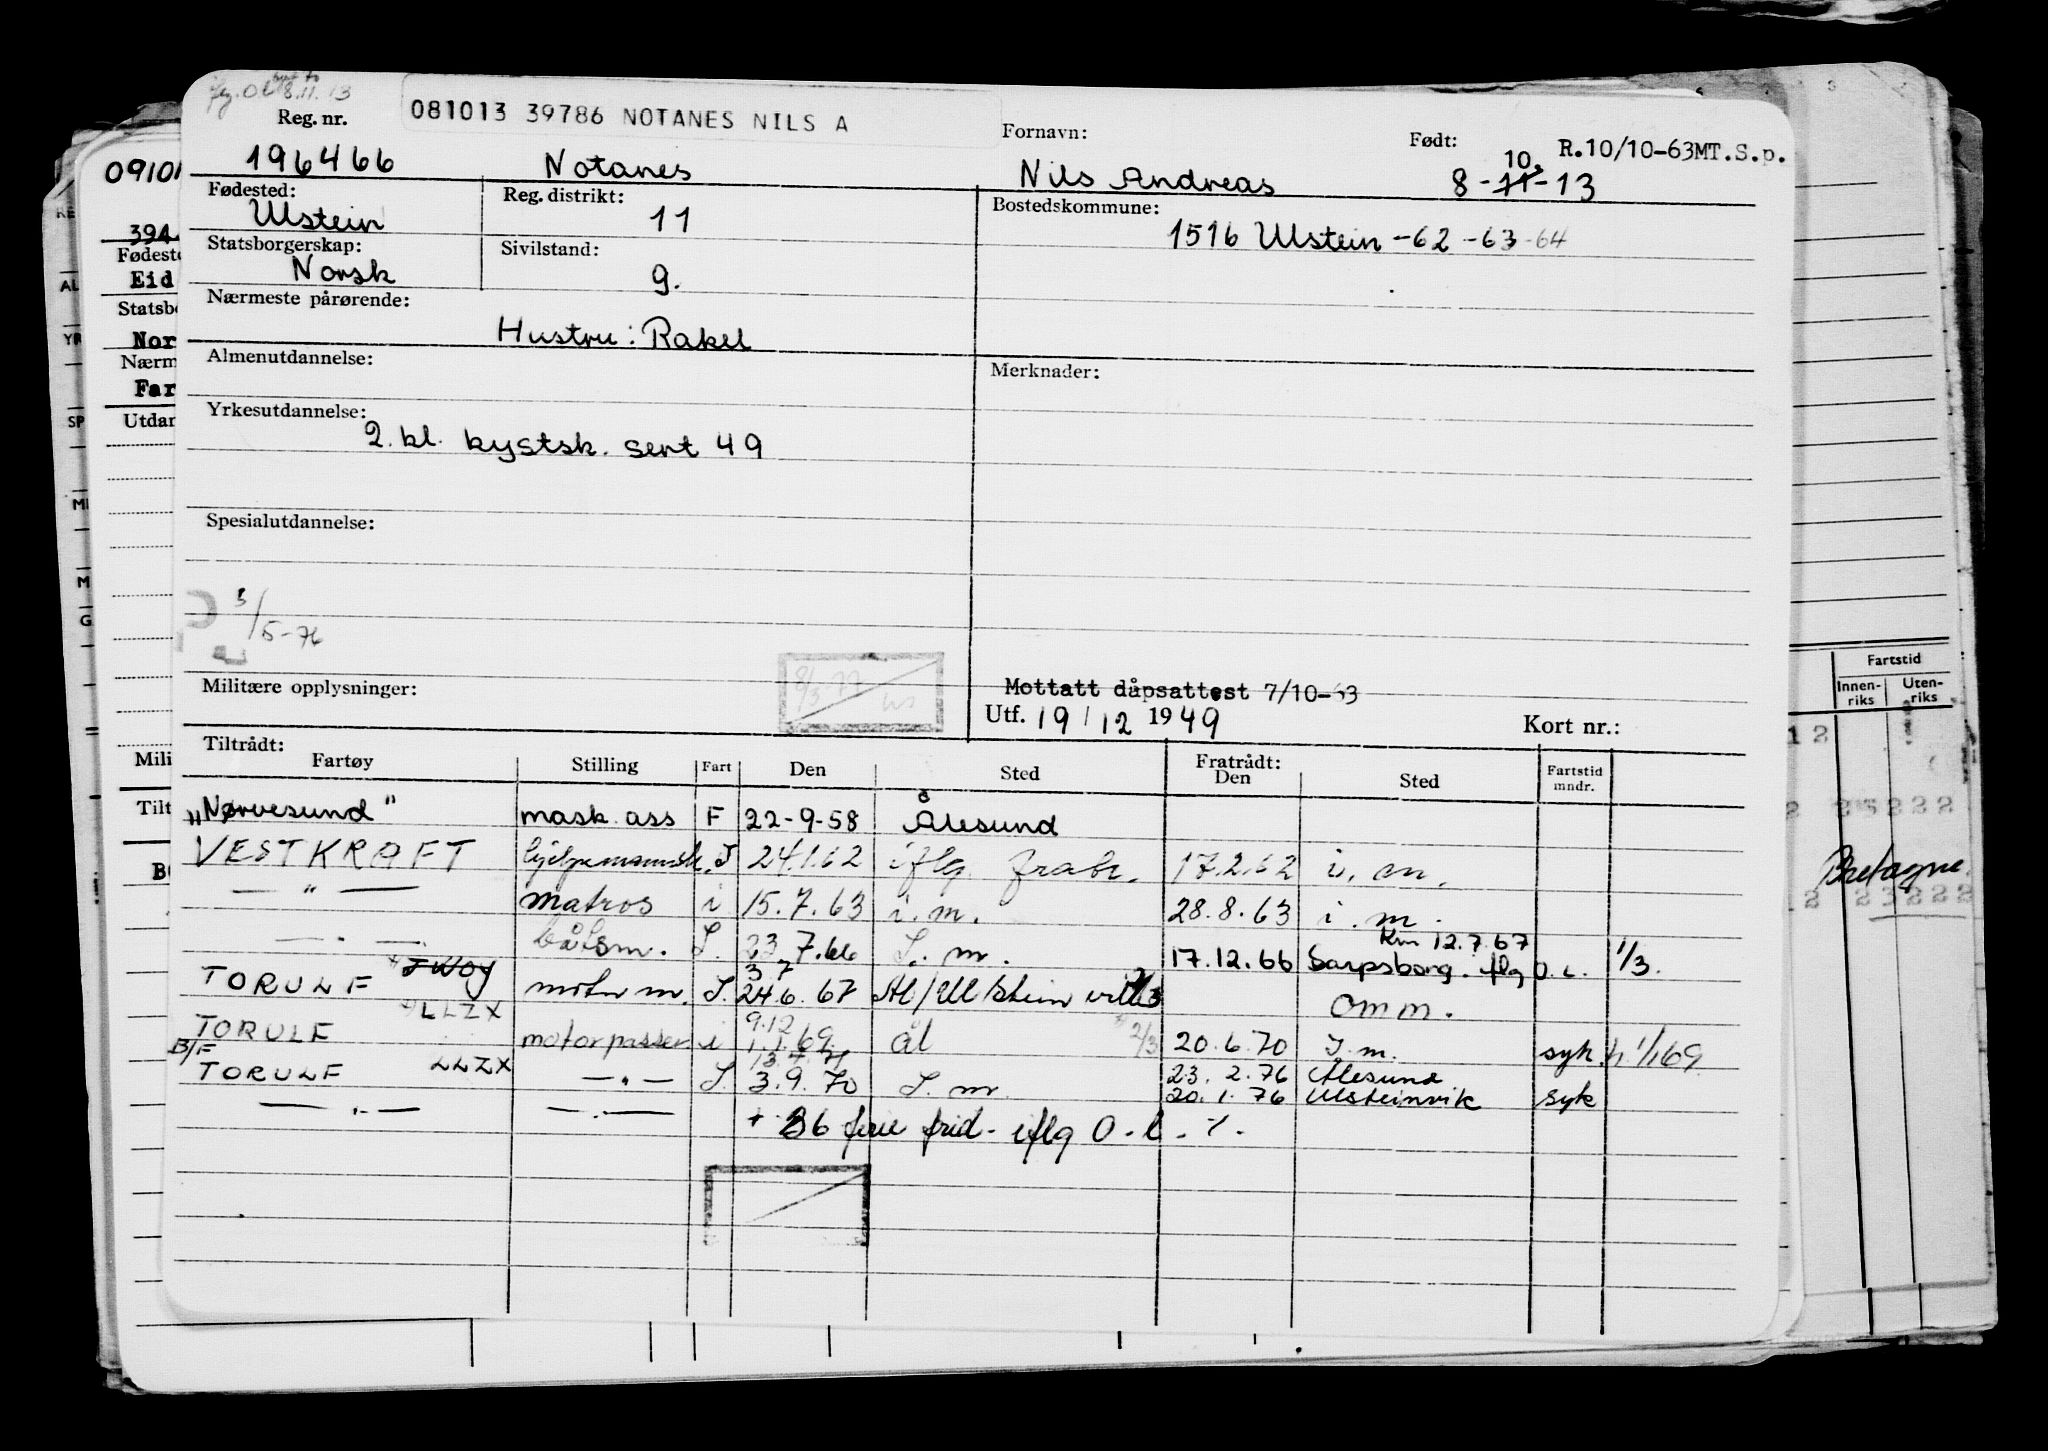 8.11.13
081013 39786 NOTANES NILS A
Reg. nr. Fornavn: Født: R.10/10-63MT.S.p.
196466 Notanes Nils Andreas 8-11-13
10.
Fødested: Reg. distrikt: Bostedskommune:
Ulstein 11 1516 Ulstein -62 -63 -64
Statsborgerskap: Sivilstand:
Norsk g.
Nærmeste pårørende:
Hustru: Rakel
Almenutdannelse: Merknader:
Yrkesutdannelse:
2. kl. kystsk. sert 49
Spesialutdannelse:
3/5-76
8/3-77
Militære opplysninger: Mottatt dåpsattest 7/10-63
Utf. 19/12 1949 Kort nr.:
Tiltrådt: Fratrådt:
Fartøy Stilling Fart Den Sted Den Sted Fartstid mndr.
"Nørvesund" mask. ass F 22-9-58 Ålesund
VESTKRAFT hjelpemannsk. I 24.1.62 iflg. 17.2.62 i. m.
— " — matros i 15.7.63 i. m. 28.8.63 i. m.
— " — båtsm. I. 23.7.66 I. m. 17.12.66 Sarpsborg. iflg O. L. 1/3.
12.7.67
TORULF I. 24.6.67 omm.
3 7
LLZX
TORULF motorpasser i 1.1.69 ål 2/3 20.6.70 I. m. syk. 1/1 69
9.12
B/F
TORULF LLZX — " — I. 3.9.70 I. m. 23. 2.76 Ålesund
— " — — " — 20. 1. 76 Ulsteinvik syk
+ 36 ferie frid- iflg O. L.
09101
394
Fødeste
Eid
Statsbo
Nor
Nærm
Far
Utdan
Mili
Tilt
Fartstid
Innen-riks Uten-riks
12
Bretagne